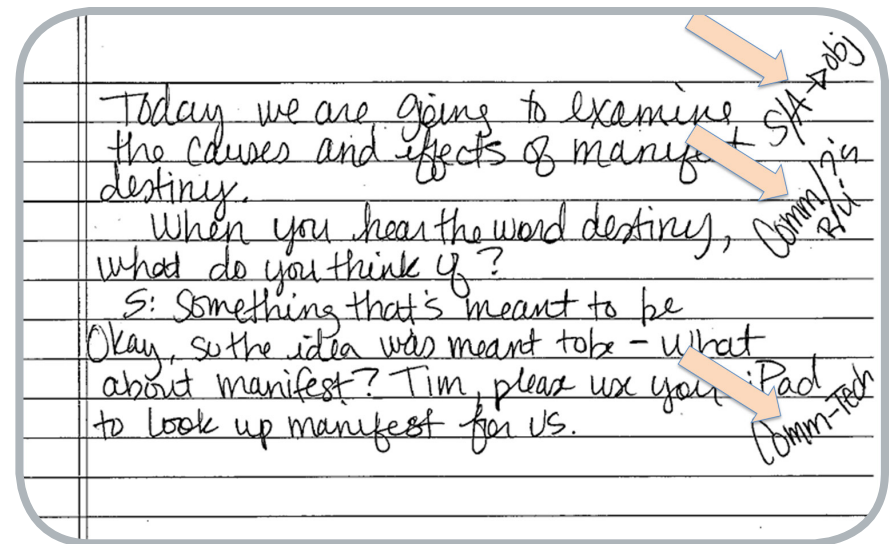 Today we are going to examine
the causes and effects of manifest
destiny.
When you hear the word destiny,
what do you think of?
S: Something that's meant to be
Okay, so the idea was meant to be – what
about manifest? Tim, please use your iPad
to look up manifest for us.
S/A → obj
Comm/
Comm-Tech